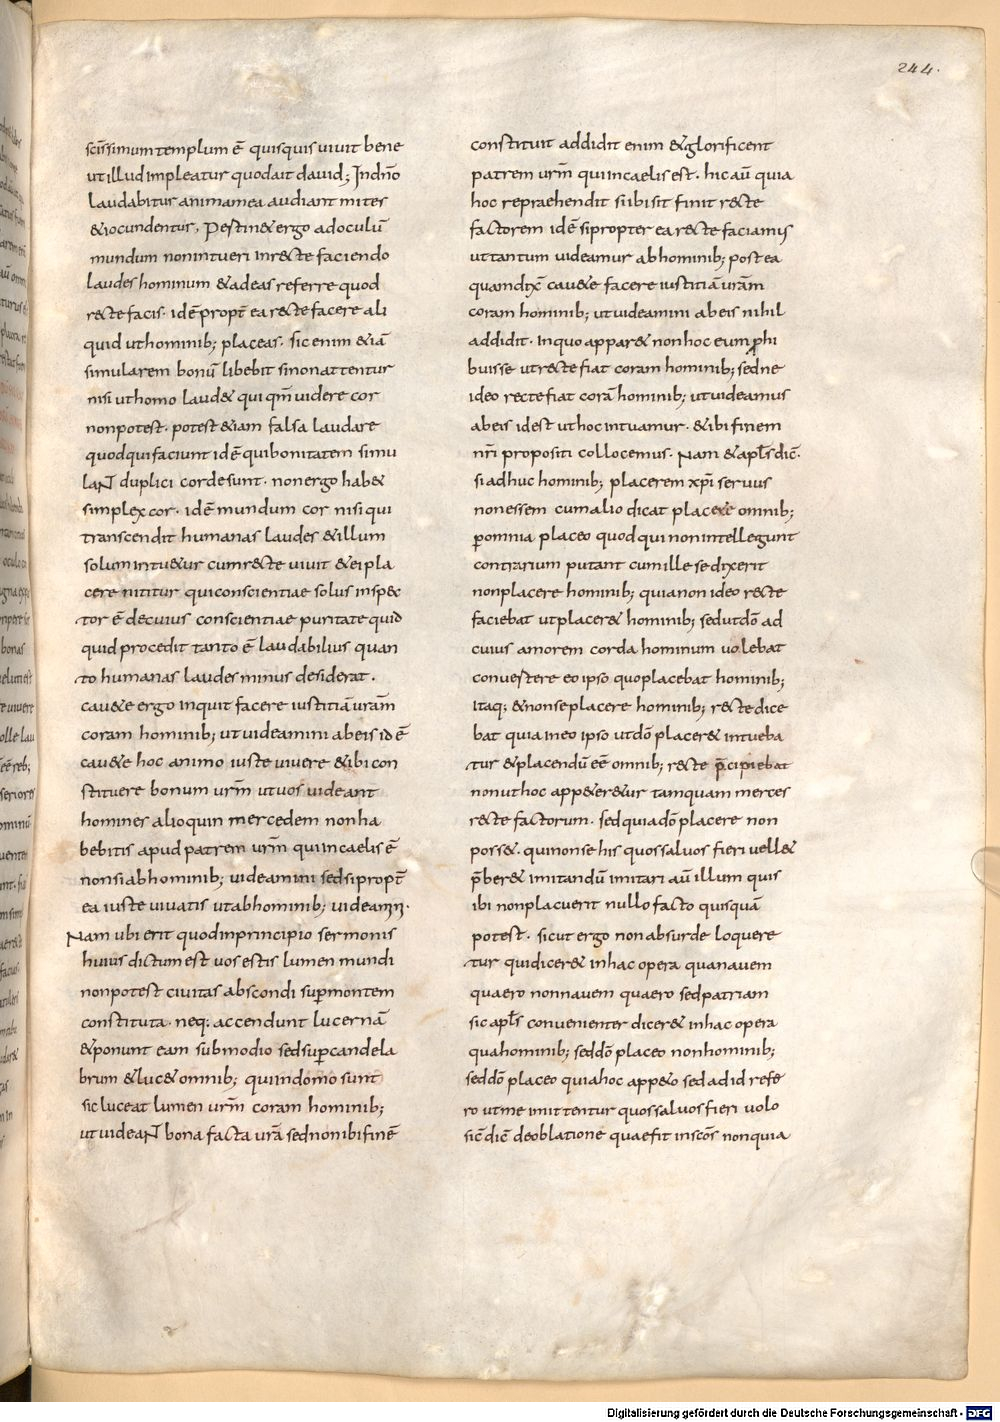 244.
sc̄issimum templum ē quisquis uiuit bene
ut illud impleatur quod ait dauid; In dn̄o
laudabitur anima mea audiant mites
& iocundentur, Pestin& ergo ad oculū
mundum non intueri in r&cte faciendo
laudes hominum & ad eas referre quod
r&cte facis. id ē propt̄ ea r&cte facere ali
quid ut hominib; placeas. sic enim & iā
simularem bonū libebit si non attentur
nisi ut homo laud& qui qm̄ uidere cor
non potest. potest & iam falsa laudare
quod qui faciunt id ē qui bonitatem simu
lant duplici corde sunt. non ergo hab&
simplex cor. id ē mundum cor nisi qui
transcendit humanas laudes & illum
solum intu&ur cum r&cte uiuit & ei pla
cere nititur qui conscientiae solus inspec
tor ē de cuius conscientiae puritate quid
quid procedit tanto ē laudabilius quan
to humanas laudes minus desiderat.
cau&e ergo inquit facere iustitiā urām
coram hominib; ut uideamini ab eis id ē
cau&e hoc animo iuste uiuere & ibi con
stituere bonum urm̄ ut uos uideant
homines alioquin mercedem non ha
bebitis apud patrem urm̄ qui in caelis ē
non si ab hominib; uideamini sed si propt̄
ea iuste uiuatis ut ab hominib; uideamini.
Nam ubi erit quod in principio sermonis
huius dictum est uos estis lumen mundi
non potest ciuitas abscondi sup̄ montem
constituta. neq; accendunt lucernā
& ponunt eam sub modio sed sup̄ candela
brum & luc& omnib; qui in domo sunt
sic luceat lumen urm̄ coram hominib;
ut uideant bona facta urā sed non ibi finē
constituit addidit enim & glorificent
patrem urm̄ qui in caelis est. hic aū quia
hoc repraehendit si ibi sit finit r&cte
factorem id ē si propter ea r&cte faciamus
ut tantum uideamur ab hominib; post ea
quam dix̄ cau&e facere iustitiā urām
coram hominib; ut uideamini ab eis nihil
addidit. in quo appar& non hoc eum ꝓhi
buisse ut r&cte fiat coram hominib; sed ne
ideo recte fiat corā hominib; ut uideamus
ab eis id est ut hoc intuamur. & ibi finem
nr̄i propositi collocemus. Nam & apl̄s dic̄.
si adhuc hominib; placerem xp̄i seruus
non essem cum alio dicat placere omnib;
p̄ omnia placeo quod qui non intellegunt
contrarium putant cum ille se dixerit
non placere hominib; quia non ideo r&cte
faciebat ut placer& hominib; sed ut dō ad
cuius amorem corda hominum uolebat
conuertere eo ipso quo placebat hominib;
itaq; & non se placere hominib; r&cte dice
bat quia in eo ipso ut dō placer& intueba
tur & placendū eē omnib; r&cte p̄cipiebat
non ut hoc app&er&ur tamquam merces
r&cte factorum. sed quia dō placere non
poss&. qui non se his quos saluos fieri uell&
p̄ber& imitandū imitari aū illum quis
ibi non placuerit nullo facto quisquā
potest. sicut ergo non absurde loquere
tur qui dicer& in hac opera qua nauem
quaero non nauem quaero sed patriam
sic apl̄s conuenienter dicer& in hac opera
qua hominib; sed dō placeo non hominib;
sed dō placeo quia hoc app&o sed ad id refe
ro ut me imittentur quos saluos fieri uolo
sic̄ dic̄ de oblatione quae fit in scōs non quia
Digitalisierung gefördert durch die Deutsche Forschungsgemeinschaft - DFG